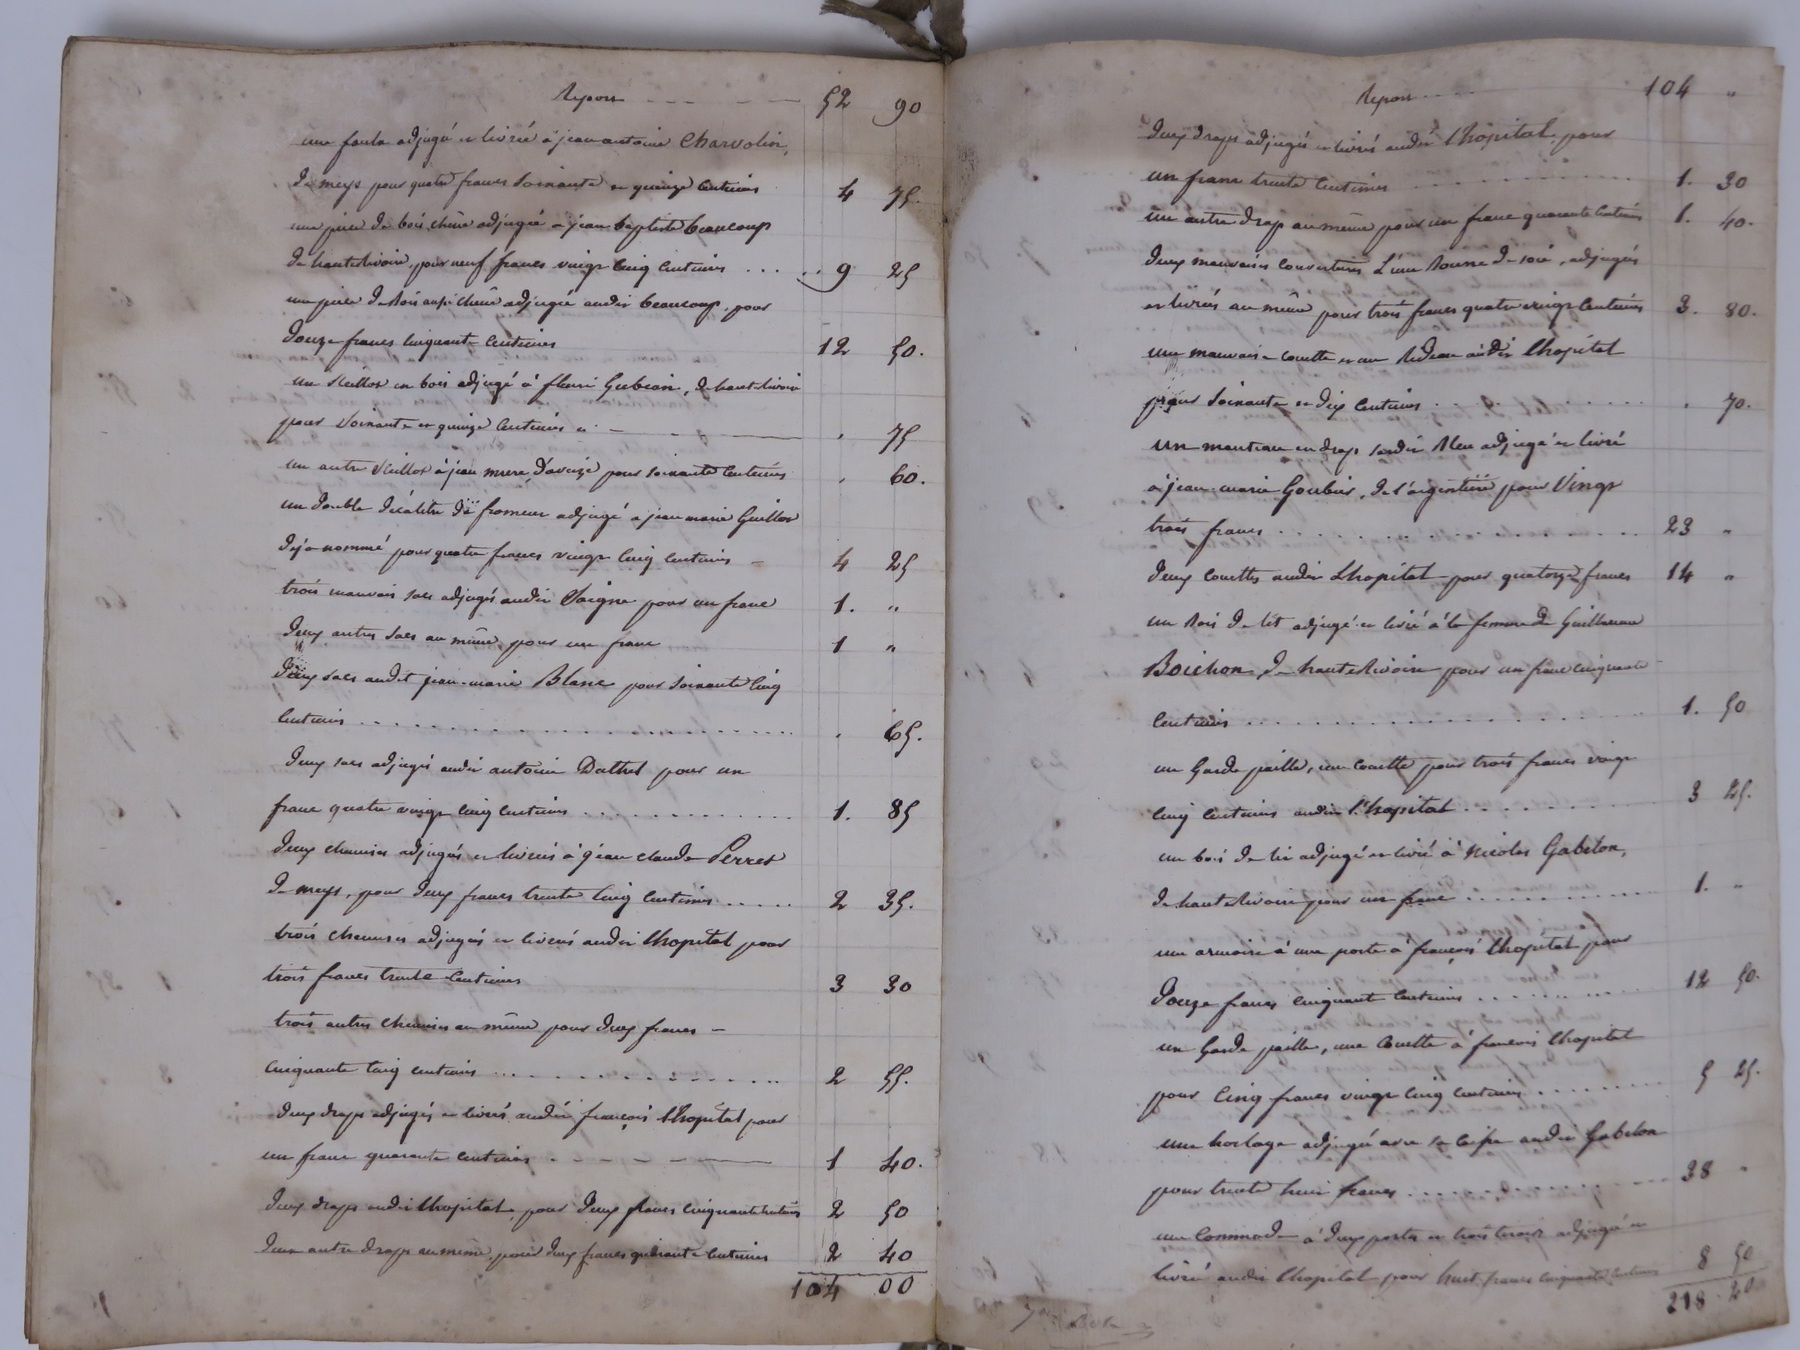 Report 52 90
une faulx adjugé et livrée à jean antoine Charvolin,
de meys pour quatre francs soixante et quinze centimes 4 75.
une piece de bois chêne adjugée a jean baptiste beaucoup
de hauterivoire, pour neuf francs vingt cinq centimes 9 25
une piece de bois aussi chêne adjugée audit beaucoup, pour
douze francs cinquante centimes 12 50.
un seillot en bois adjugé à fleuri Gubian, de hauterivoire
pour soixante et quinze centimes 75
un autre seillot à jean d'aveize pour soixante centimes 60.
un double décalitre de froment adjugé a jean marie Guillot
déja nommé pour quatre francs vingt cinq centimes 4 25
trois mauvais sacs adjugés audit Saigne pour un franc 1. "
deux autres sacs au même pour un franc 1 "
deux sacs audit jean-marie Blanc pour soixante cinq
centimes 65.
deux sacs adjugés audit antoine pour un
franc quatre vingt cinq centimes 1. 85
deux chemises adjugées et livrées à jean claude Perret
de meys, pour deux francs trente cinq centimes 2 35.
trois chemises adjugées et livrées audit Lhopital pour
trois francs trente centimes 3 30
trois autres chemises au même pour deux francs
cinquante cinq centimes 2 55.
deux draps adjugés et livrés audit françois Lhopital pour
un franc quarante centimes 1 40.
deux draps audit Lhopital, pour deux francs cinquante centimes 2 50
deux autre draps au même, pour deux francs quarante centimes 2 40
104 00
Report 104 "
deux draps adjugés et livrés audit Lhôpital, pour
un franc trente centimes 1. 30
un autre drap au même pour un franc quarante centimes 1. 40.
deux mauvaises couvertures L'une de soie, adjugées
et livrées au même pour trois francs quatre vingt centimes 3. 80.
une mauvaise couette et un rideau audit Lhopital
pour soixante et dix centimes 70.
un manteau en drap bleu adjugé et livré
à jean-marie Goubier, de l'argentière pour vingt
trois francs 23 "
deux couettes audit Lhopital pour quatorze francs 14 "
un bois de lit adjugé et livré à la femme de Guillaume
Boichon, de hauterivoire pour un franc cinquante
centimes 1. 50
un Garde paille, une couette pour trois francs vingt
cinq centimes audit Lhopital 3 25.
un bois de lit adjugé et livré à nicolas Gabelon,
de hauterivoire pour un franc 1. "
une armoire à une porte à françois Lhopital pour
douze francs cinquante centimes 12 50.
un Garde paille, une Couette à francois Lhopital
pour Cinq francs vingt cinq centimes 5 25.
une horloge adjugée avec sa caisse audit Gabelon
pour trente huit francs 38 "
une Commode à deux portes et trois tiroirs adjugée et
livrée audit Lhopital pour huit francs cinquante centimes 8 50
218 20